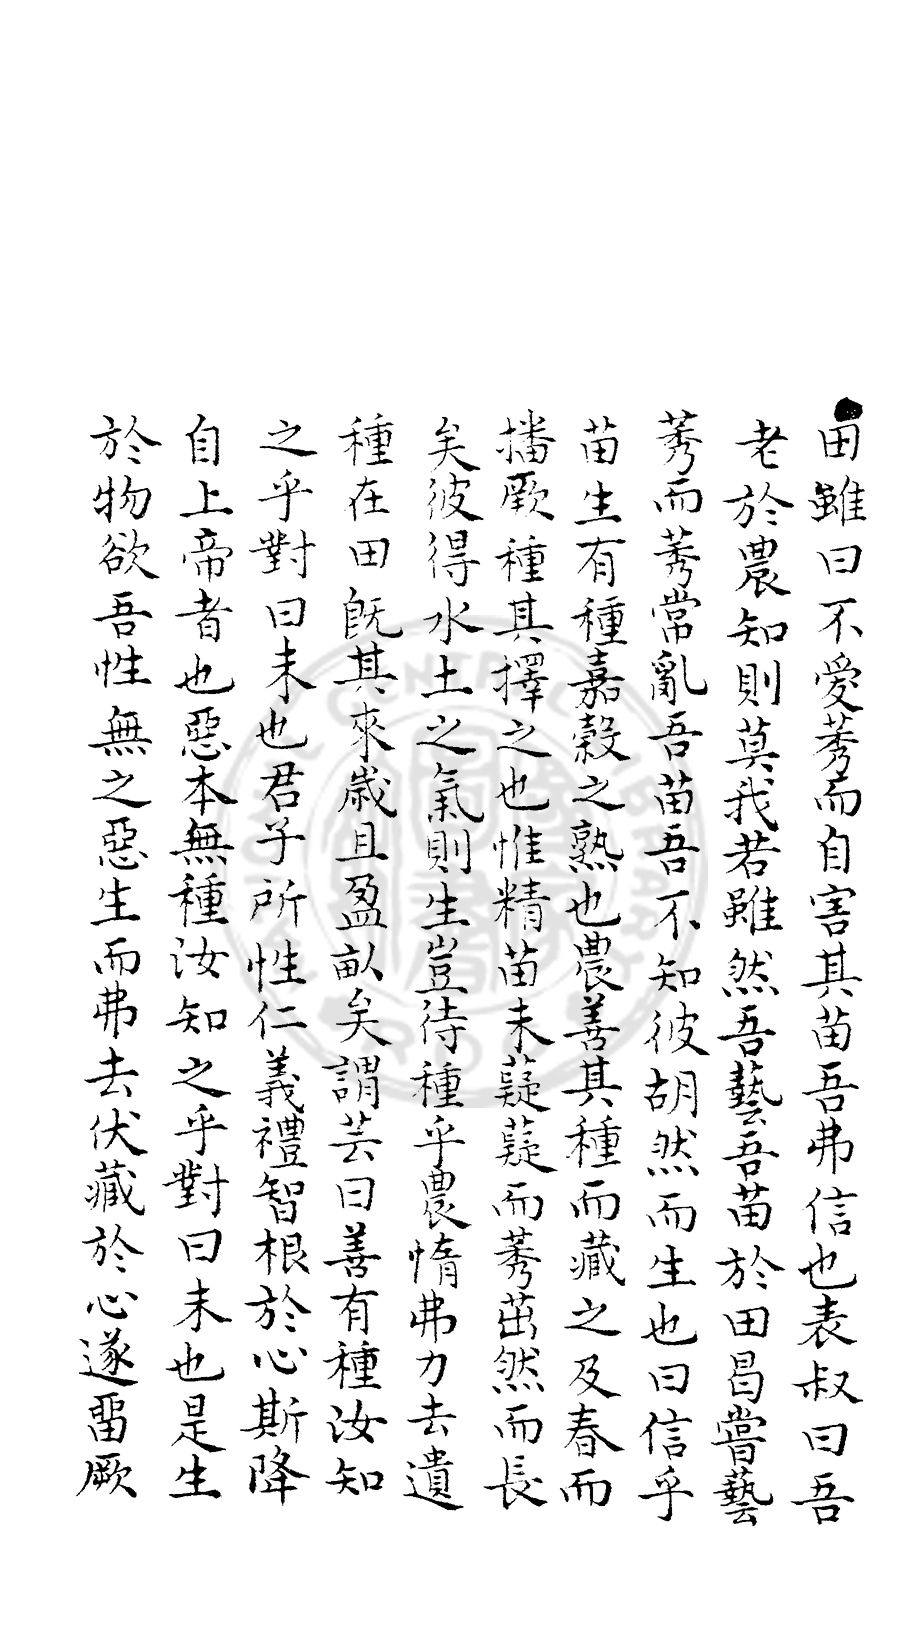 田雖曰不愛莠而自害其苗吾弗信也表叔曰吾
老於農知則莫我若雖然吾藝吾苗於田曷嘗藝
莠而莠常亂吾苗吾不知彼胡然而生也曰信乎
苗生有種嘉穀之熟也農善其種而藏之及春而
播厥種其擇之也惟精苗未薿薿而莠茁然而長
矣彼得水土之氣則生豈待種乎農惰弗力去遺
種在田既其來歲且盈畝矣謂芸曰善有種汝知
之乎對曰未也君子所性仁義禮智根於心斯降
自上帝者也惡本無種汝知之乎對曰未也是生
於物欲吾性無之惡生而弗去伏藏於心遂畱厥
CENTRAL LIBRARY